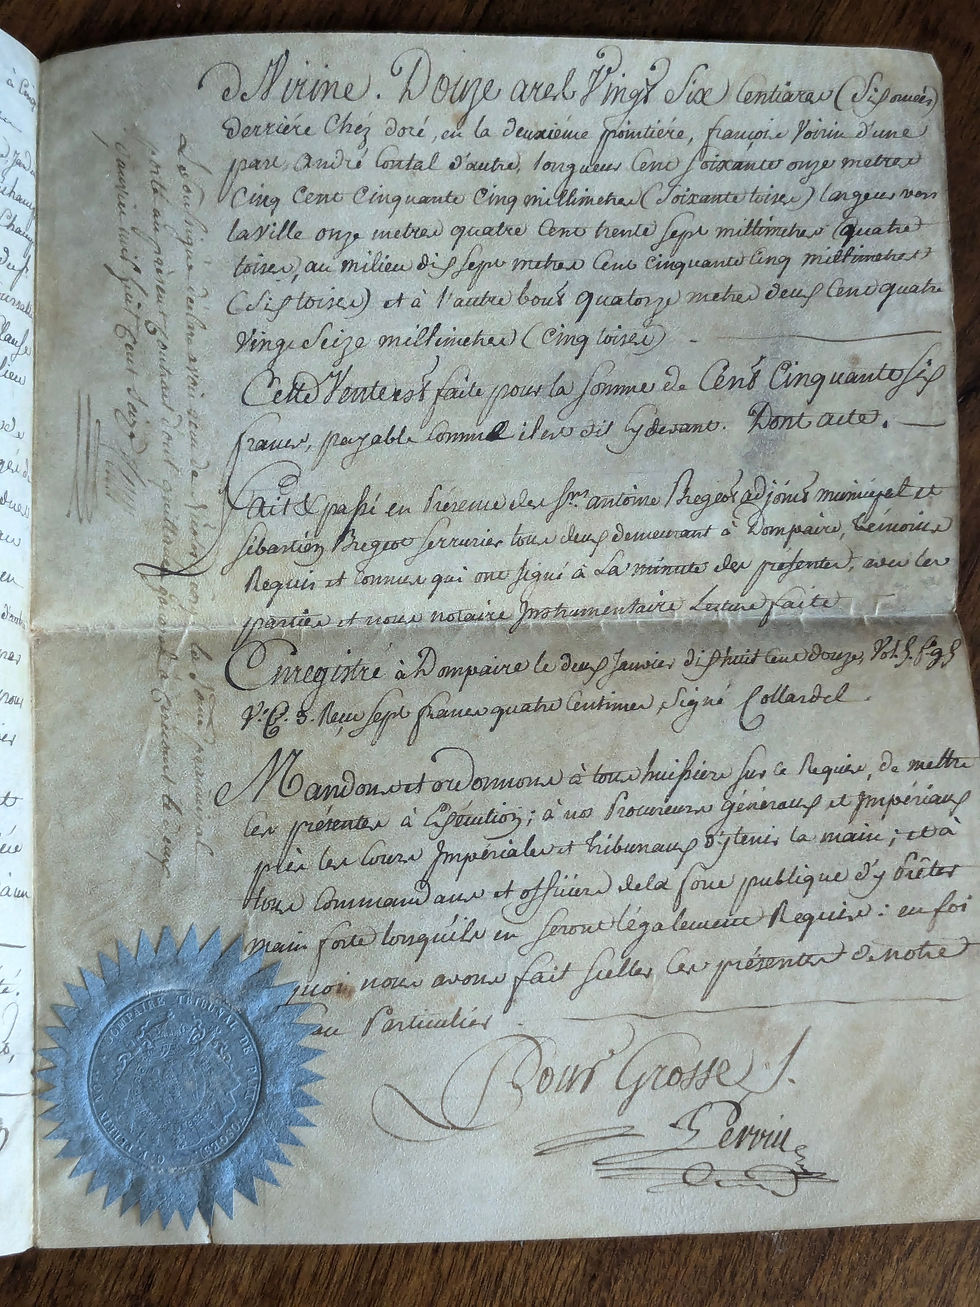 Mirine. Douze ares Vingt Six Centiares (Six omées)
derriére Chéz doré, en la deuxiéme pointiére, françois Voirin d'une
part André Contal d'autre, longueur Cent Soixante onze metres
Cinq Cent Cinquante Cinq millimetres (Soixante toises) largeur vers
la Ville onze metres quatre Cent trente sept millimetres (quatre
toises) au milieu dix sept metres Cent Cinquante Cinq millimetres
(Six toises) et à l'autre bout quatorze metres deux Cent quatre
Vingt Seize millimetres (Cinq toises)
Cette Vente est faite pour la Somme de Cent Cinquante six
francs, payable Comme il est dit Cydevant. Dont acte.
Fait & passé en Présence des Srs. antoine Bregeot adjoint municipal et
sébastien Bregeot serrurier tous deux demeurant à Dompaire, témoins
Requis et Connus qui ont signé à La minute des présentes, avec les
parties et nous notaire Instrumentaire Lecture faite
Enregistré à Dompaire le deux Janvier dix huit Cent douze, Vol. 5. f° 95
V° C. 3. Reçu sept francs quatre Centimes, Signé Collardel.
Mandons et ordonnons à tous huissiers sur ce Requis, de mettre
les présentes à Exécution; à nos Procureurs généraux et Impériaux
près les Cours Impériales et tribunaux d'y tenir la main; et à
tous Commandans et officiers de la force publique d'y Prêter
main forte lorsqu'ils en seront légalement Requis: en foi
quoi nous avons fait sceller les présentes de notre
au Particulier
Pour Grosse
Perrin
Le Soussigné déclare avoir reçu de Voirin la Somme principal
porté au présent Contrat dont quittance
Janvier mil huit Cent Seize
DOMPAIRE TRIBUNAL DE PRE